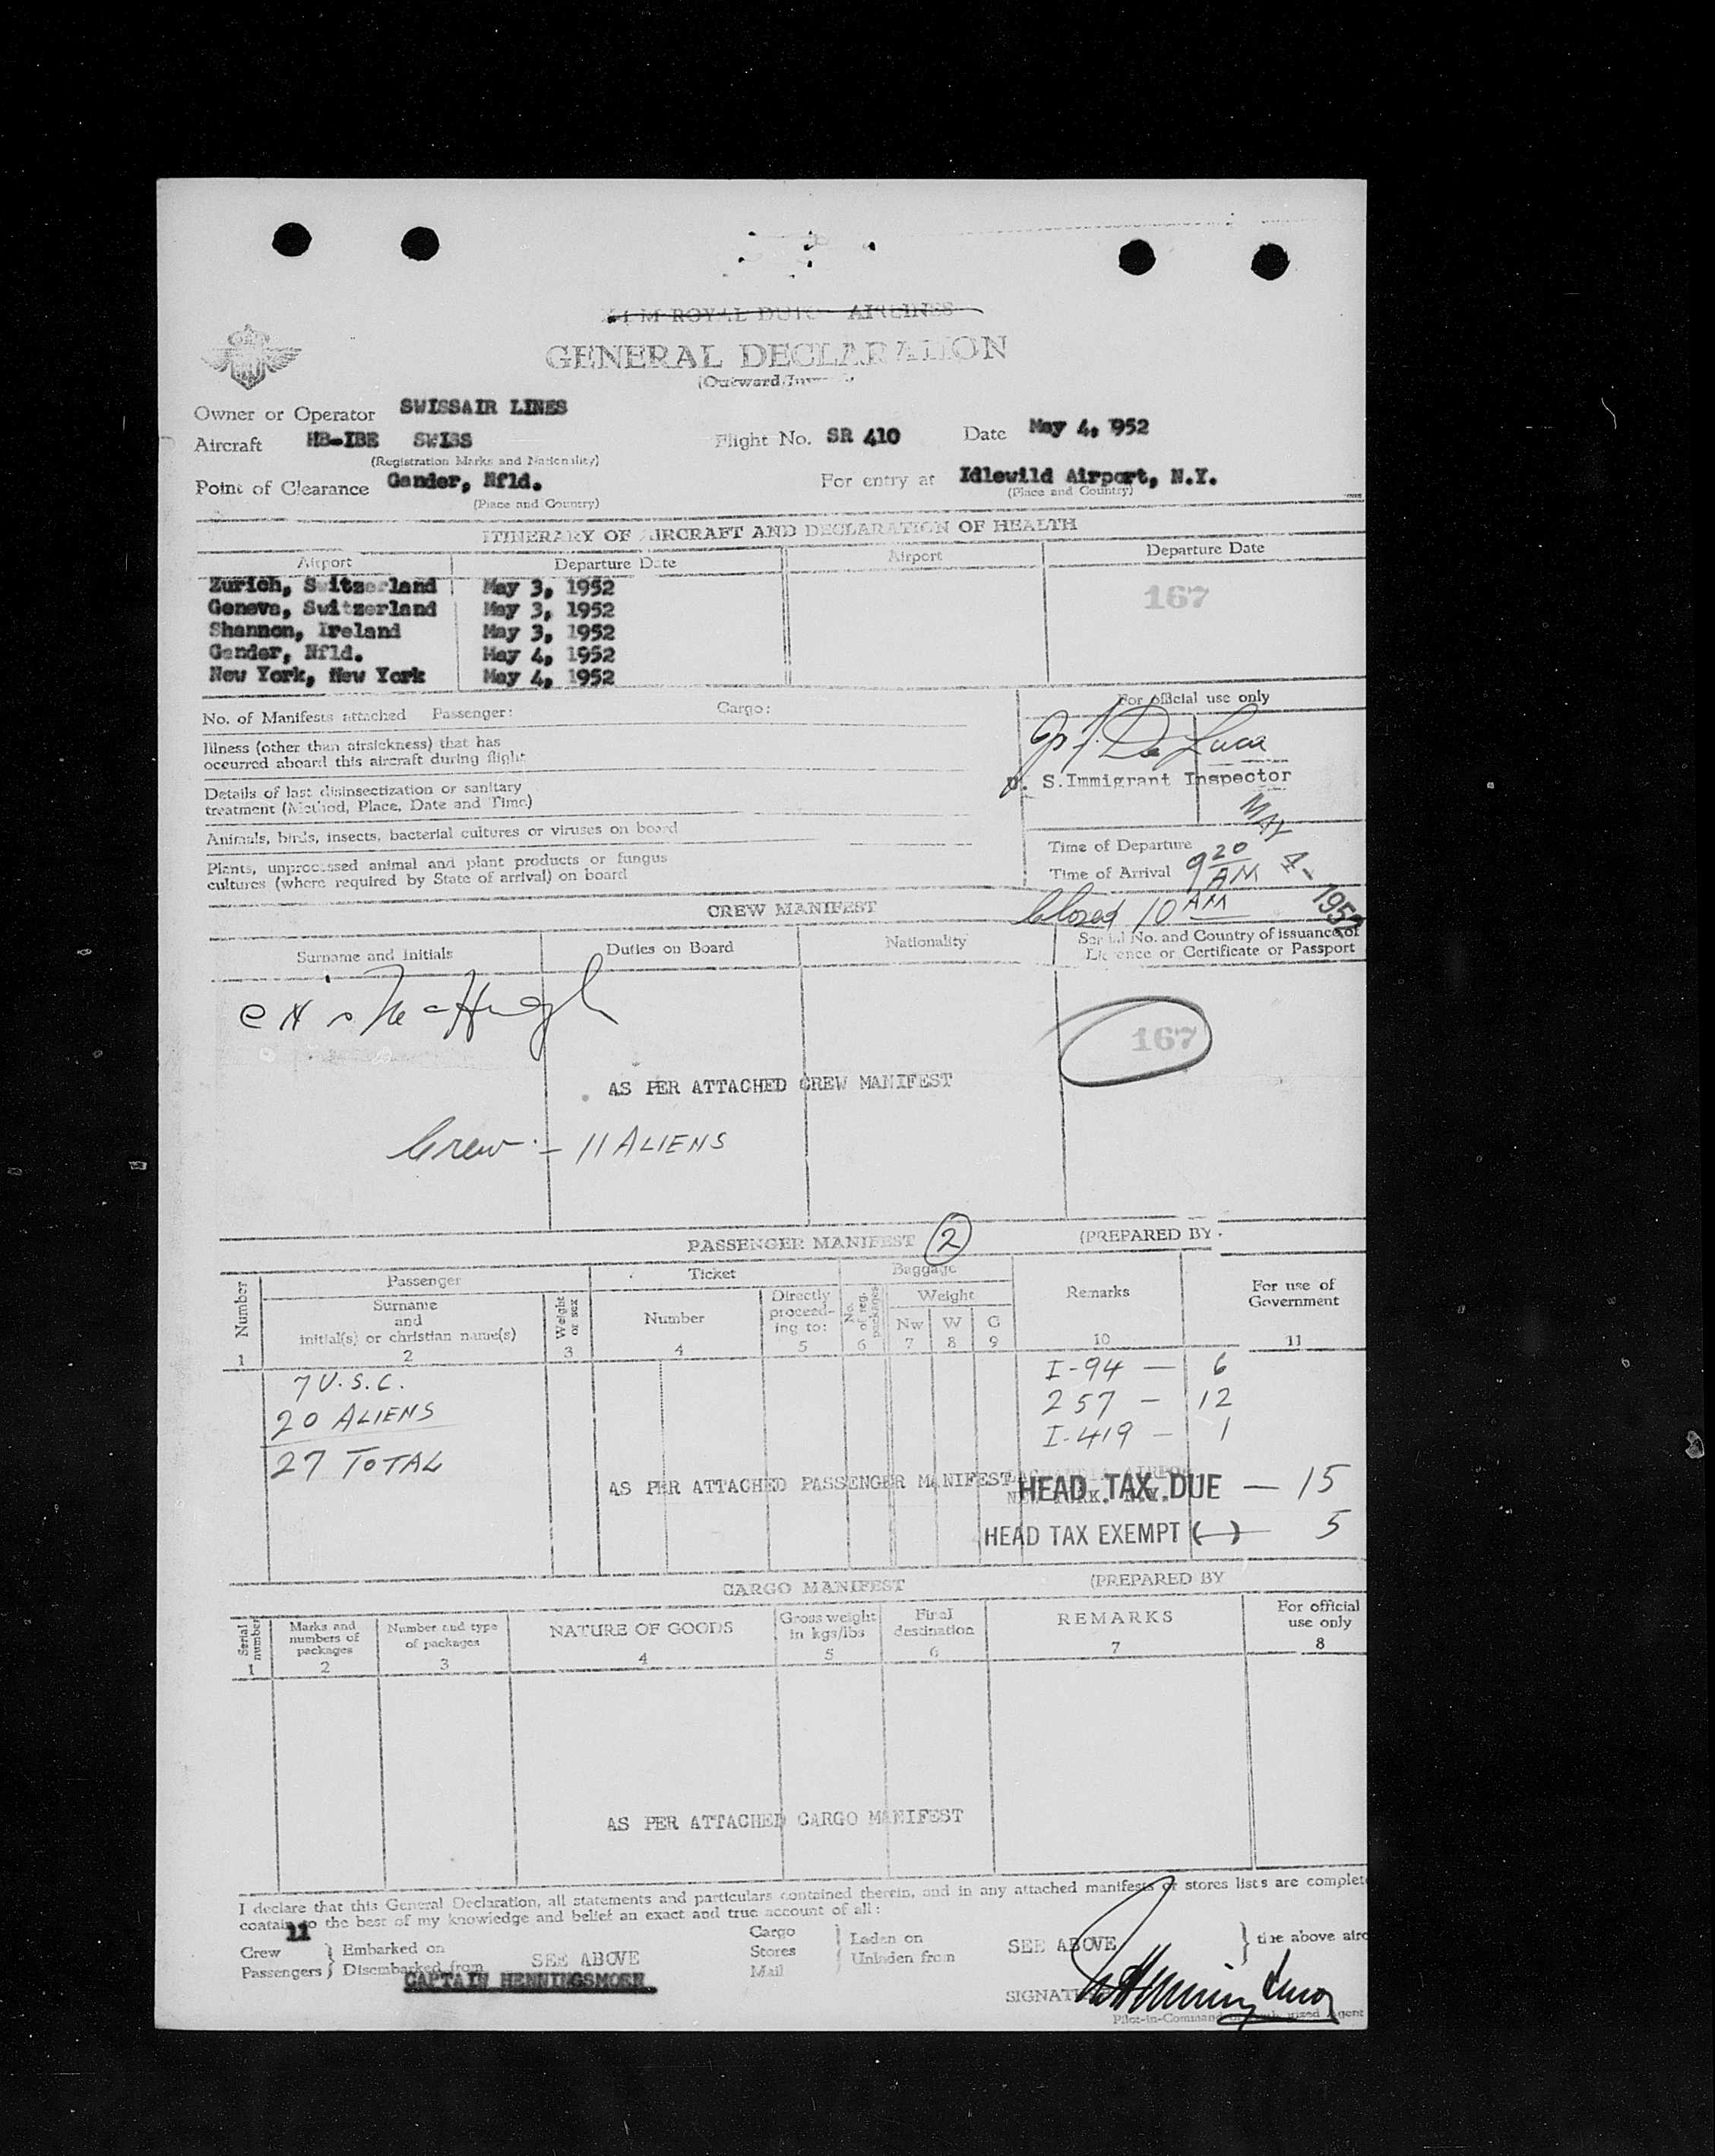 ROYAL DUTCH AIRLINES
GENERAL DECLARATION
(Outward/Inward)
Owner or Operator SWISSAIR LINES
Aircraft HB-IBE SWISS Flight No. SR 410 Date May 4, 1952
(Registration Marks and Nationality)
Point of Clearance Gander, Nfld. For entry at Idlewild Airport, N.Y.
(Place and Country) (Place and Country)
ITINERARY OF AIRCRAFT AND DECLARATION OF HEALTH
Airport Departure Date Airport Departure Date
Zurich, Switzerland May 3, 1952 167
Geneva, Switzerland May 3, 1952
Shannon, Ireland May 3, 1952
Gander, Nfld. May 4, 1952
New York, New York May 4, 1952
No. of Manifests attached Passenger: Cargo: For official use only
Illness (other than airsickness) that has
occurred aboard this aircraft during flight
De Luca
U. S. Immigrant Inspector
Details of last disinsectization or sanitary
treatment (Method, Place, Date and Time)
MAY 4 - 1952
Animals, birds, insects, bacterial cultures or viruses on board
Plants, unprocessed animal and plant products or fungus
cultures (where required by State of arrival) on board
Time of Departure
Time of Arrival 9 20 AM
Closed 10 AM
CREW MANIFEST
Surname and Initials Duties on Board Nationality Serial No. and Country of issuance of
Licence or Certificate or Passport
McHugh
167
AS PER ATTACHED CREW MANIFEST
Crew - 11 ALIENS
PASSENGER MANIFEST 2 (PREPARED BY
Number Passenger Ticket Baggage Remarks For use of
Government
Surname
and
initial(s) or christian name(s)
Weight
or sex
Number
Directly
proceed-
ing to:
No.
of reg.
packages
Weight
Nw W G
1 2 3 4 5 6 7 8 9 10 11
7 U.S.C. I-94 — 6
20 ALIENS 257 — 12
27 TOTAL I-419 — 1
AS PER ATTACHED PASSENGER MANIFEST
LAGUARDIA AIRPORT
NEW YORK, N.Y.
HEAD TAX DUE — 15
HEAD TAX EXEMPT ( ) 5
CARGO MANIFEST (PREPARED BY
Serial
number
Marks and
numbers of
packages
Number and type
of packages
NATURE OF GOODS
Gross weight
in kgs/lbs
Final
destination
REMARKS
For official
use only
1 2 3 4 5 6 7 8
AS PER ATTACHED CARGO MANIFEST
I declare that this General Declaration, all statements and particulars contained therein, and in any attached manifests or stores lists are complete
contain to the best of my knowledge and belief an exact and true account of all:
11
Crew } Embarked on
Passengers } Disembarked from SEE ABOVE
Cargo
Stores
Mail
Laden on
Unladen from
SEE ABOVE
} the above airc
CAPTAIN HENNINGSMOEN
SIGNAT
Pilot-in-Command Agent